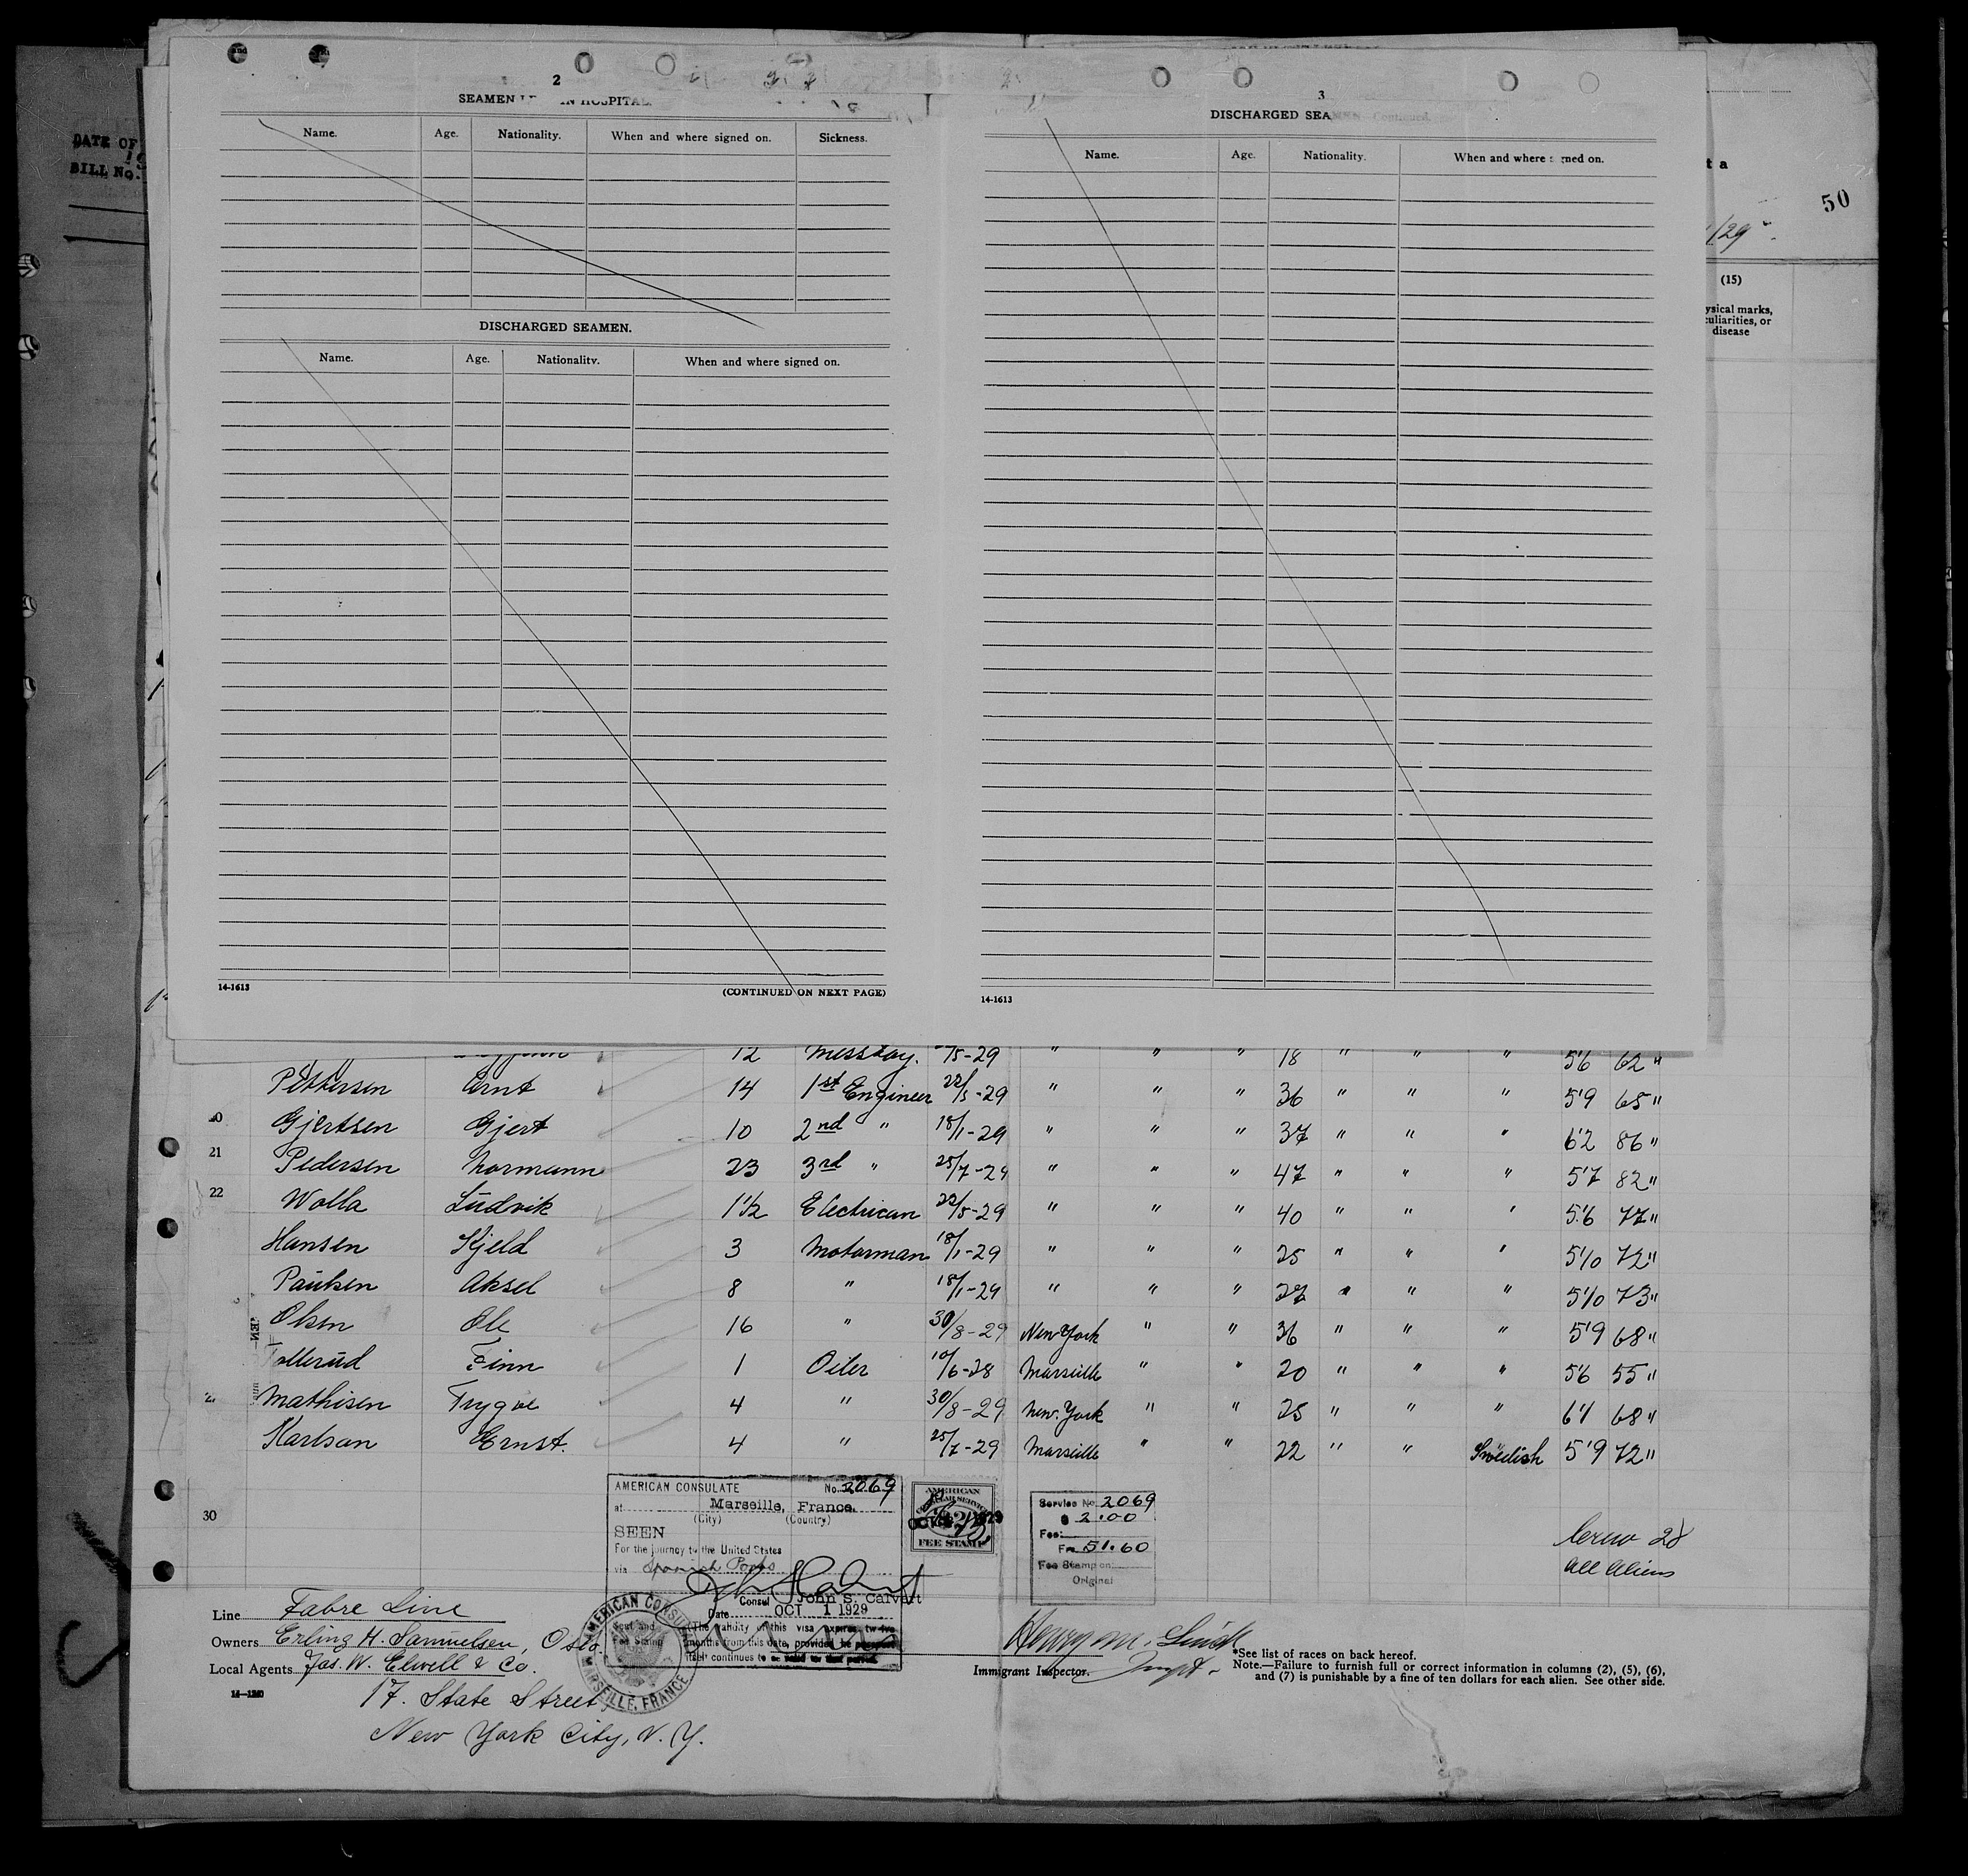 2
SEAMEN IN HOSPITAL.
Name. Age. Nationality. When and where signed on. Sickness.
DISCHARGED SEAMEN.
Name. Age. Nationality. When and where signed on.
14-1613 (CONTINUED ON NEXT PAGE)
3
DISCHARGED SEAMEN—Continued.
Name. Age. Nationality. When and where signed on.
14-1613
DATE OF
BILL No.
t a
50
/29
(15)
ysical marks,
uliarities, or
disease
12 Messboy. /5-29 " " " 18 " " " 5'6 62 "
Pettersen Arnt 14 1st Engineer 22/5-29 " " " 36 " " " 5'9 65 "
20 Gjertsen Gjert 10 2nd " 18/1-29 " " " 37 " " " 6'2 86 "
21 Pedersen Normann 23 3rd " 25/7-29 " " " 47 " " " 5'7 82 "
22 Wolla Ludvik 1½ Electrican 22/5-29 " " " 40 " " " 5'6 77 "
Hansen Kjeld 3 Motorman 18/1-29 " " " 25 " " " 5'10 72 "
Paulsen Aksel 8 " 18/1-29 " " " 27 " " " 5'10 73 "
Olsen Ole 16 " 30/8-29 New York " " 36 " " " 5'9 68 "
Tollerud Finn 1 Oiler 10/6-28 Marseille " " 20 " " " 5'6 55 "
Mathisen Trygve 4 " 30/8-29 New York " " 25 " " " 6'1 68 "
Karlson Ernst. 4 " 25/7-29 Marseille " " 22 " " Swedish 5'9 72 "
30
AMERICAN CONSULATE No. 2069
at Marseille, France.
(City) (Country)
SEEN
For the journey to the United States
via Spanish Ports
Consul John S. Calvert
Date OCT 1 1929
(The validity of this visa expires twelve
months from this date, provided the passport
itself continues to be valid for that period.
AMERICAN CONSULATE
Seal and
Fee Stamp
MARSEILLE, FRANCE
AMERICAN
CONSULAR SERVICE
FEE STAMP
Service No. 2069
$ 2.00
Fee:
Fr 51.60
Fee Stamp on
Original
Crew 28
all Aliens
Line Fabre Line
Owners Erling H. Samuelsen, Oslo.
Local Agents Jas. W. Elwell & Co.
17. State Street,
New York City, N.Y.
14—1240
Immigrant Inspector.
*See list of races on back hereof.
Note.—Failure to furnish full or correct information in columns (2), (5), (6),
and (7) is punishable by a fine of ten dollars for each alien. See other side.